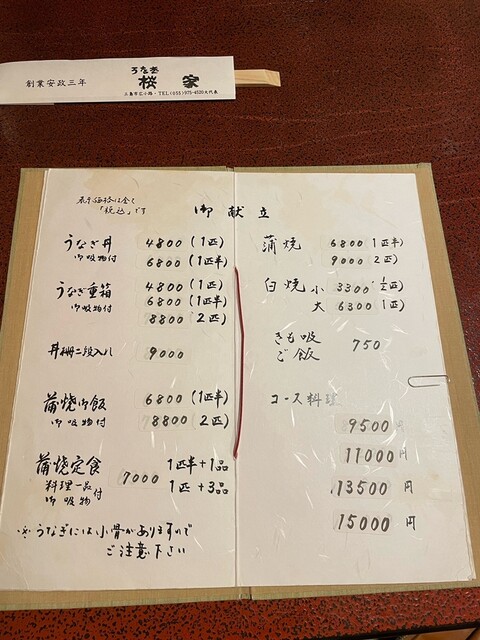 創業安政三年
うなぎ
桜家
三島市広小路・TEL(055)975-4520大代表
表示価格は全く
「税込」です
御献立
うなぎ丼 4800(1匹)
御吸物付 6800(1匹半)
うなぎ重箱 4800(1匹)
御吸物付 6800(1匹半)
8800(2匹)
丼桶二段入り 9000
蒲焼御飯 6800(1匹半)
御吸物付 8800(2匹)
蒲焼定食 7000 1匹半+1品
料理一品付 1匹+3品
御吸物
※うなぎには小骨がありますので
ご注意下さい
蒲焼 6800 1匹半)
9000 2匹)
白焼 小 3300 ½匹)
大 6300 1匹)
きも吸 750
ご飯
コース料理
9500円
11000円
13500円
15000円